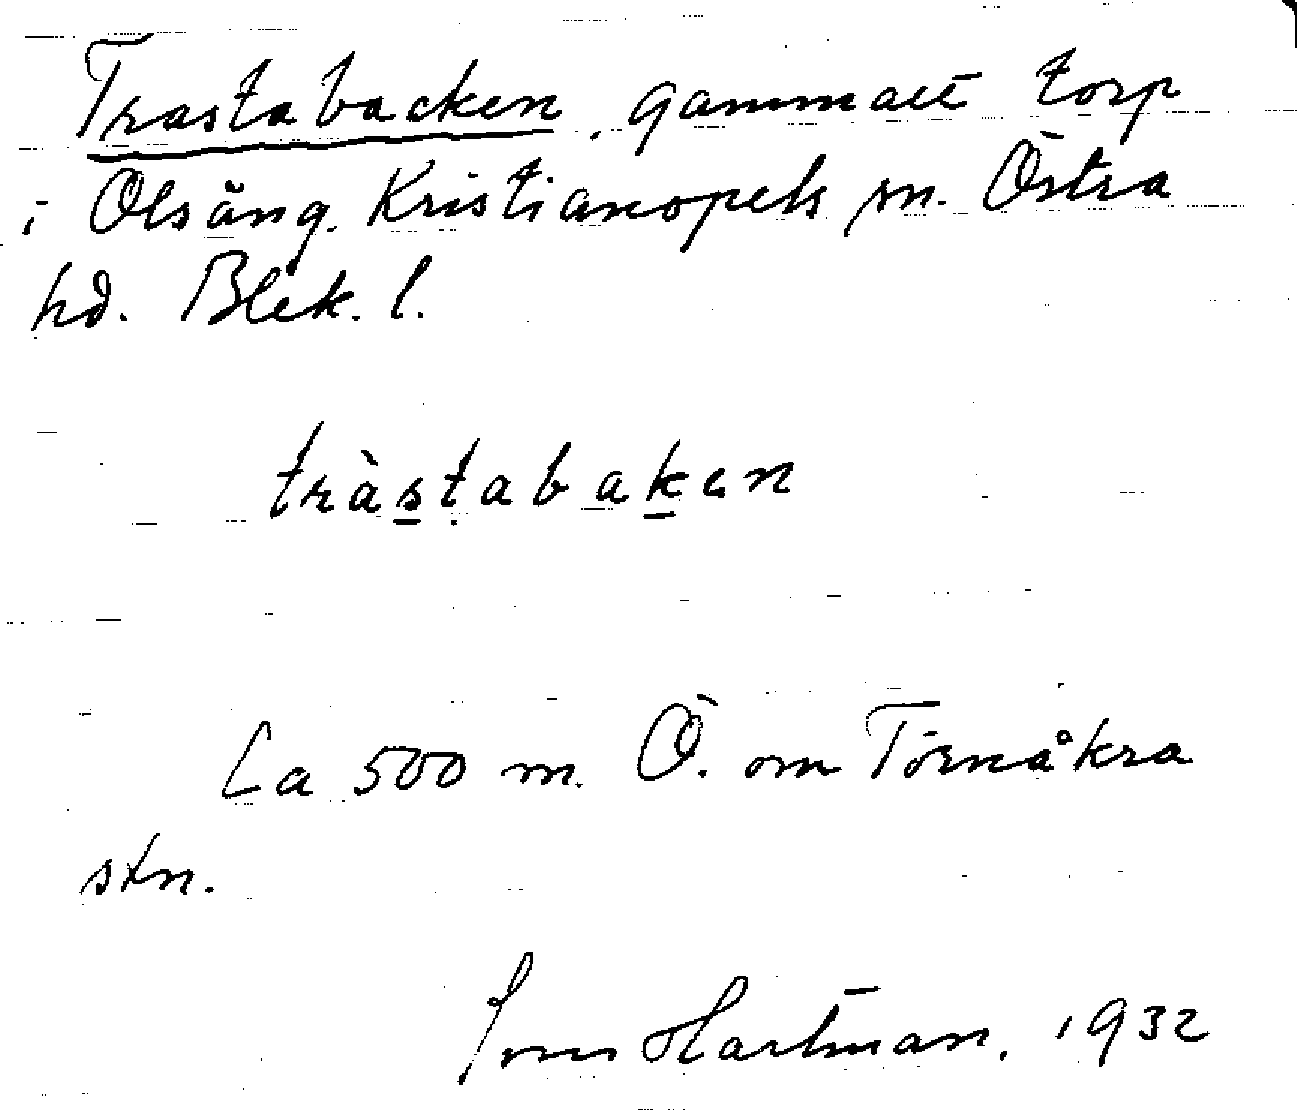 Trastabacken, gammalt torp
i Olsäng. Kristianopels sn. Östra
hd. Blek. l.
tràs̲ṭabak̲en
Ca 500 m. Ö. om Törnåkra
stn.
Hartman, 1932